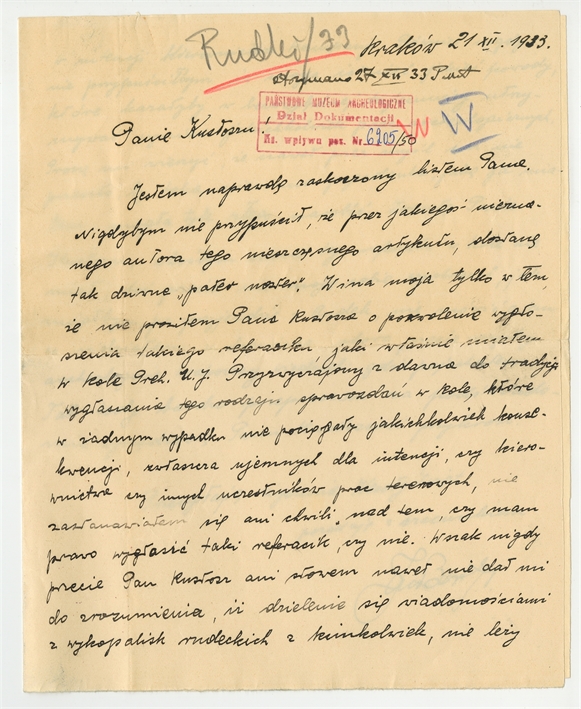 Rudki/33
Kraków 21 XII. 1933.
otrzymano 27 XII 33
PAŃSTWOWE MUZEUM ARCHEOLOGICZNE
Dział Dokumentacji
Ks. wpływu poz. Nr. 6205/50
N W
Panie Kustoszu!
Jestem naprawdę zaskoczony listem Pana.
Nigdybym nie przypuścił, że przez jakiegoś niezna-
nego autora tego nieszczęsnego artykułu, dostanę
tak dziwne „pater noster”. Wina moja tylko w tem,
że nie prosiłem Pana Kustosza o pozwolenie wygło-
szenia takiego referaciku jaki właśnie miałem
w kole Preh. U. J. Przyzwyczajony z dawna do tradycji
wygłaszania tego rodzaju sprawozdań w kole, które
w żadnym wypadku nie pociągały jakichkolwiek konse-
kwencji, zwłaszcza ujemnych dla intencji, czy kiero-
wnictwa czy innych uczestników prac terenowych, nie
zastanawiałem się ani chwili nad tem, czy mam
prawo wygłosić taki referacik, czy nie. Wszak nigdy
przecie Pan Kustosz ani słowem nawet nie dał mi
do zrozumienia, iż dzielenie się wiadomościami
z wykopalisk rudeckich z kimkolwiek, nie leży